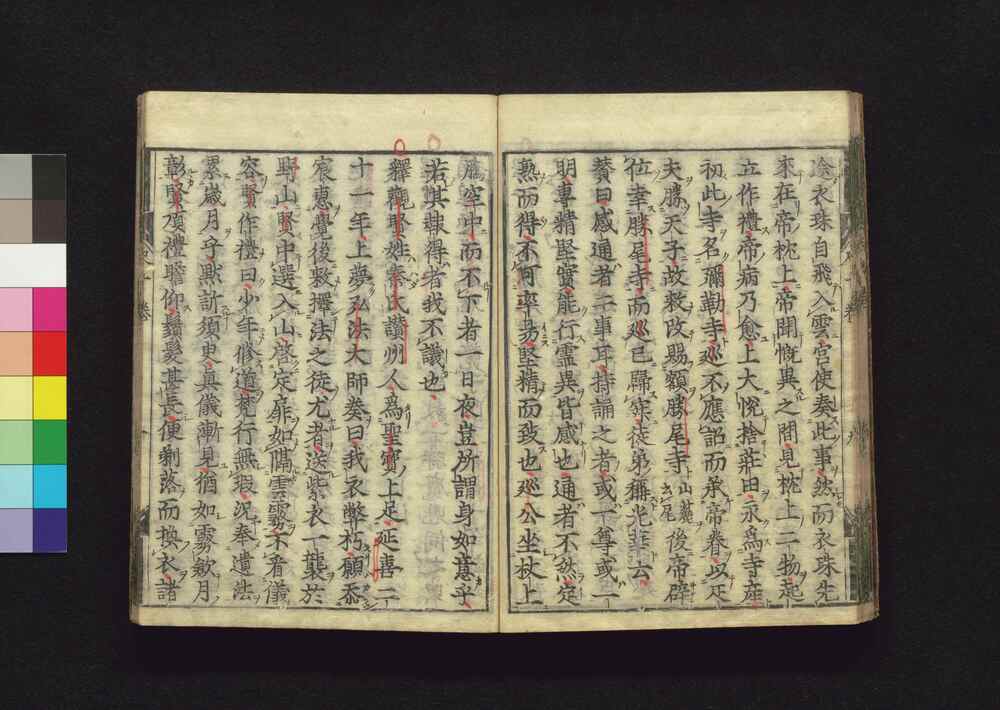 冷衣珠自飛入雲宮使奏此事然而衣珠先
來在帝枕上帝開慨異之間見枕上二物起
立作禮帝病乃愈上大悅捨莊田永爲寺産
初此寺名彌勒寺巡不應詔而承帝眷以疋
夫勝天子故敕改賜額勝尾寺山麓云尾後帝辟
位幸勝尾寺而巡已歸寂徒弟稱光華云
贊曰感通者二事耳持誦之者或一尊或一
明專精堅實能行靈異皆感也通者不然定
熟而得不可率易堅精而致也巡公坐杖上
鷹空中而不下者一日夜豈所謂身如意乎
若其隸得者我不議也
釋觀賢姓秦氏讚州人爲聖寶上足延喜二
十一年上夢弘法大師奏曰我衣弊朽願忝
宸惠覺後敕擇法之徒尤者送紫衣一襲於
野山賢中選入山啓定扉如隔雲霧不看儀
容賢作禮曰少年修道梵行無瑕況奉遺法
累歲月乎默訴須臾眞儀漸見猶如霧歛月
彰賢頂禮瞻仰鬚髮甚長便剃落而換衣諸